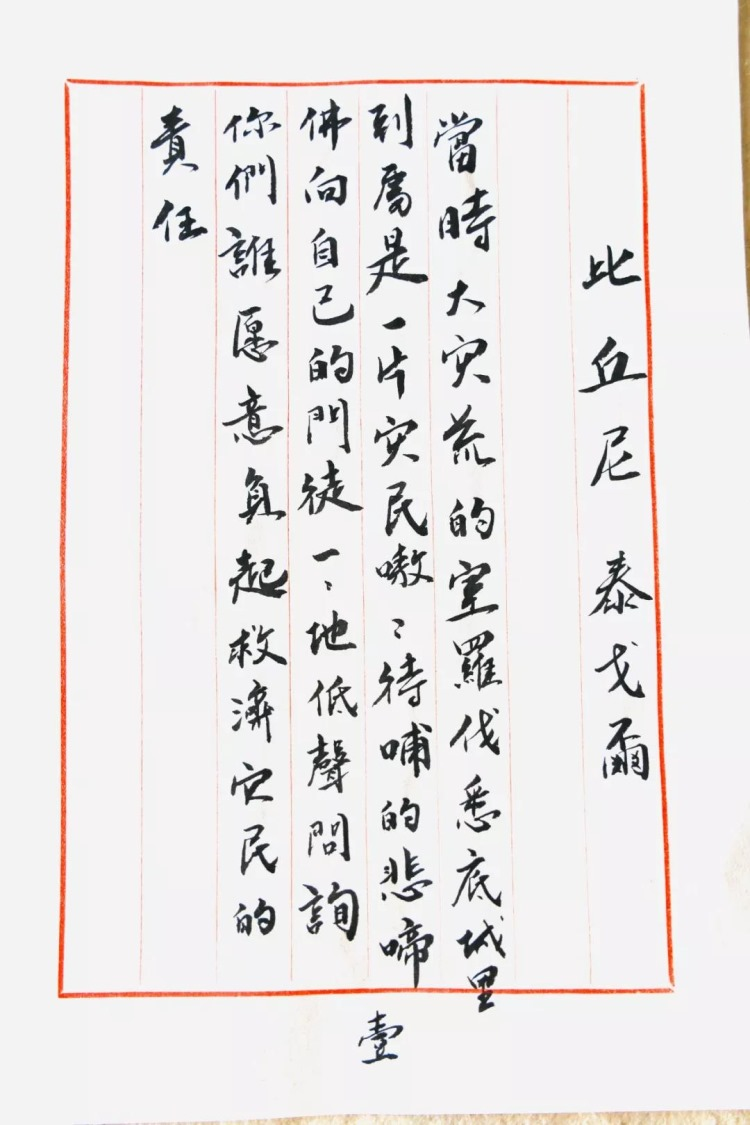 比丘尼 泰戈爾
當時大災荒的室羅伐悉底城里
到處是一片災民嗷〻待哺的悲啼
佛向自己的門徒一〻地低聲問詢
你們誰愿意負起救濟災民的
責任
壹